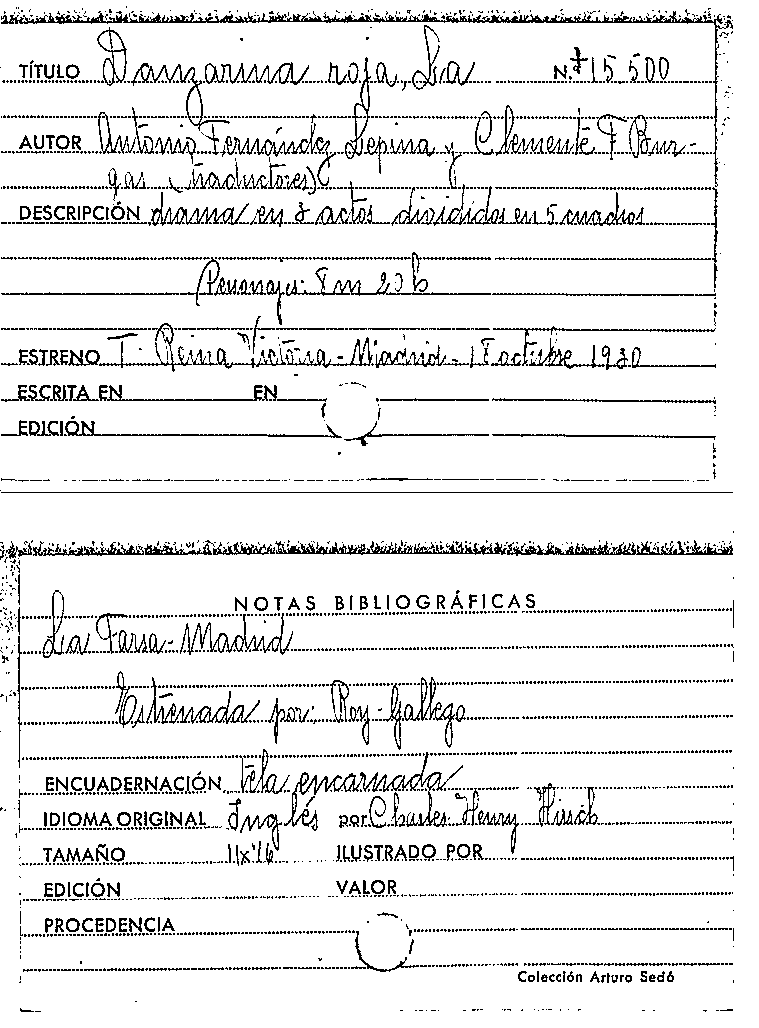 TÍTULO Danzarina roja, La N.º 15.500
AUTOR Antonio Fernández Lepina y Clemente F Bur-
gas (traductores)
DESCRIPCIÓN drama en 3 actos divididos en 5 cuadros
Personajes: 8 m 20 h
ESTRENO T. Reina Victoria - Madrid - 18 octubre 1930
ESCRITA EN EN
EDICIÓN
NOTAS BIBLIOGRÁFICAS
La Farsa - Madrid
Estrenada por: Roy - Gallego
ENCUADERNACIÓN tela encarnada
IDIOMA ORIGINAL Inglés por Charles Henry Hirsch
TAMAÑO 11x16 ILUSTRADO POR
EDICIÓN VALOR
PROCEDENCIA
Colección Arturo Sedó